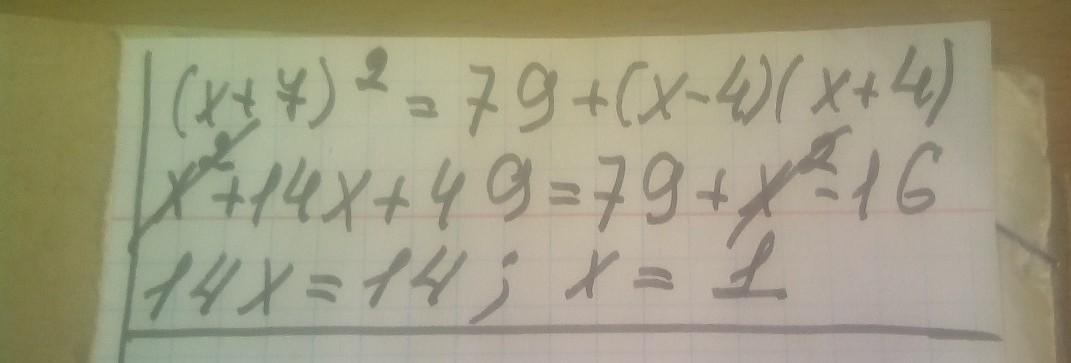 (x+7)² = 79+(x-4)(x+4)
x²+14x+49=79+x²-16
14x=14; x=1